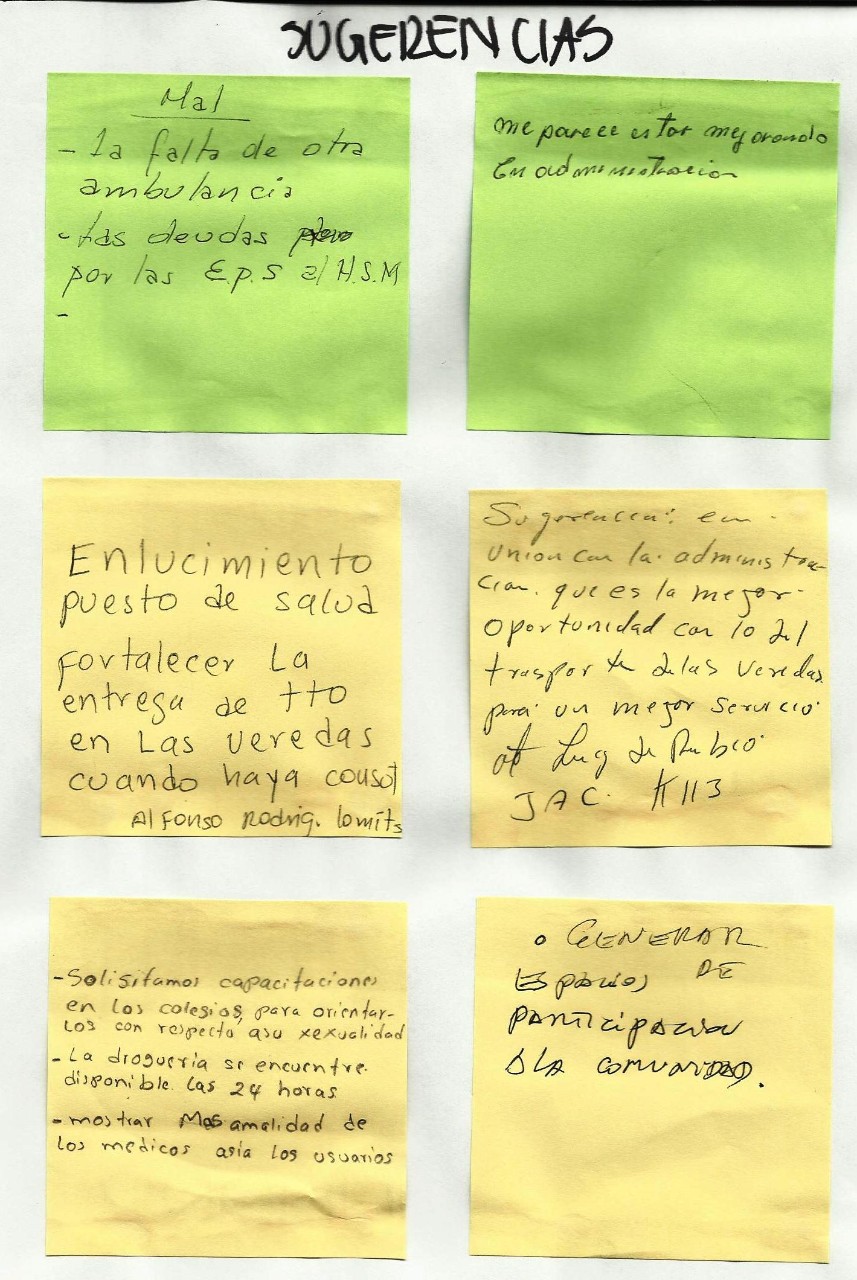 SUGERENCIAS
Mal
- La falta de otra
ambulancia
- Las deudas
por las E.P.S al H.S.M
-
me parece estar mejorando
En administracion
Enlucimiento
puesto de salud
Fortalecer La
entrega de tto
en Las veredas
cuando haya
Alfonso Rodrig.
Sugerencia: en
union con la administra-
cion. que es la mejor
oportunidad con lo del
trasporte de las veredas
para un mejor servicio
de Rubio
JAC. K113
- Solisitamos capacitaciones
en los colegios, para orientar-
los con respecto asu xexualidad
- La drogueria se encuentre
disponible las 24 horas
- mostrar Mas amalidad de
los medicos asia los usuarios
• GENERAR
ESPACIOS DE
PARTICIPACION
A LA COMUNIDAD.